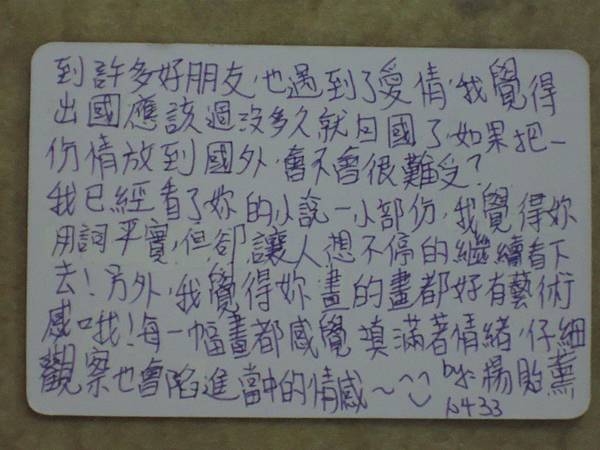 到許多好朋友,也遇到了愛情,我覺得
出國應該過沒多久就回國了,如果把一
份情放到國外,會不會很難受?
我已經看了妳的小說一小部份,我覺得妳
用詞平實,但卻讓人想不停的繼續看下
去!另外,我覺得妳畫的畫都好有藝術
感哦!每一幅畫都感覺填滿著情緒,仔細
觀察也會陷進當中的情感~^^
by.楊貽薰
b433